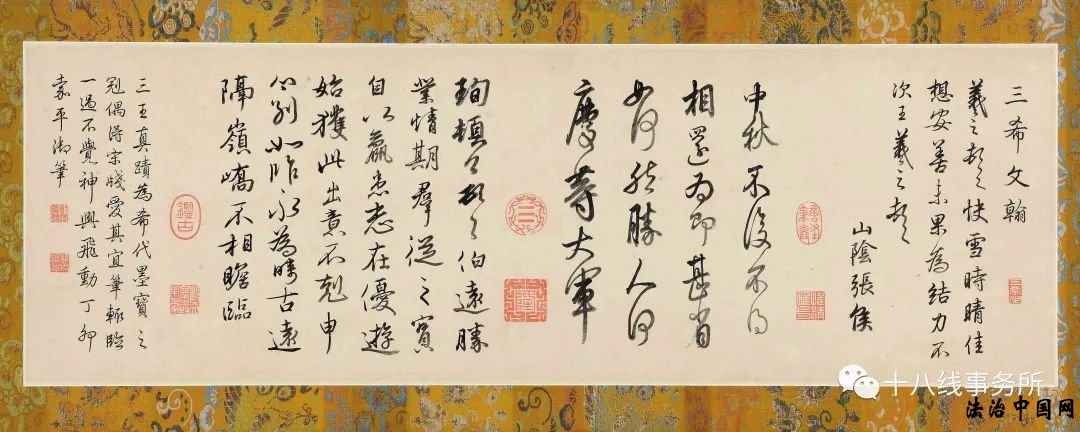 三希文翰
羲之頓首快雪時晴佳
想安善未果為結力不
次王羲之頓首
山陰張侯
中秋不復不得
相還為即甚省
如何然勝人何
慶等大軍
珣頓首頓首伯遠勝
業情期羣從之寶
自以羸患志在優遊
始獲此出意不剋申
分別如昨永為疇古遠
隔嶺嶠不相瞻臨
鑑古
三王真蹟為希代墨寶之
冠偶得宋牋愛其宜筆輒臨
一過不覺神興飛動丁卯
嘉平御筆
十八线事务所
法治中国网